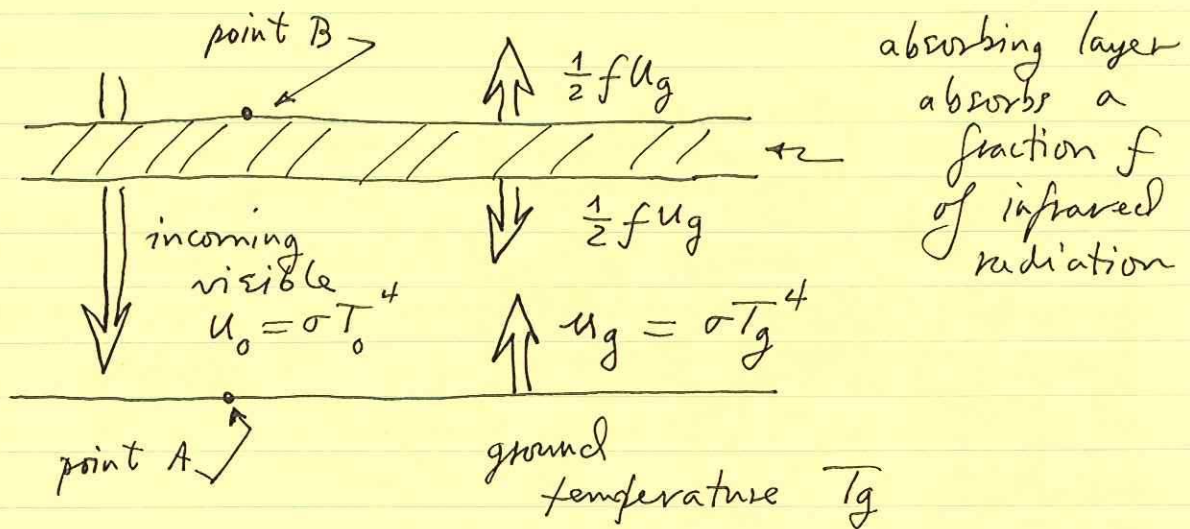 point B
½ f u_g
absorbing layer
absorbs a
fraction f
of infrared
radiation
½ f u_g
incoming
visible
u_0 = σT_0^4
u_g = σT_g^4
point A
ground
temperature T_g